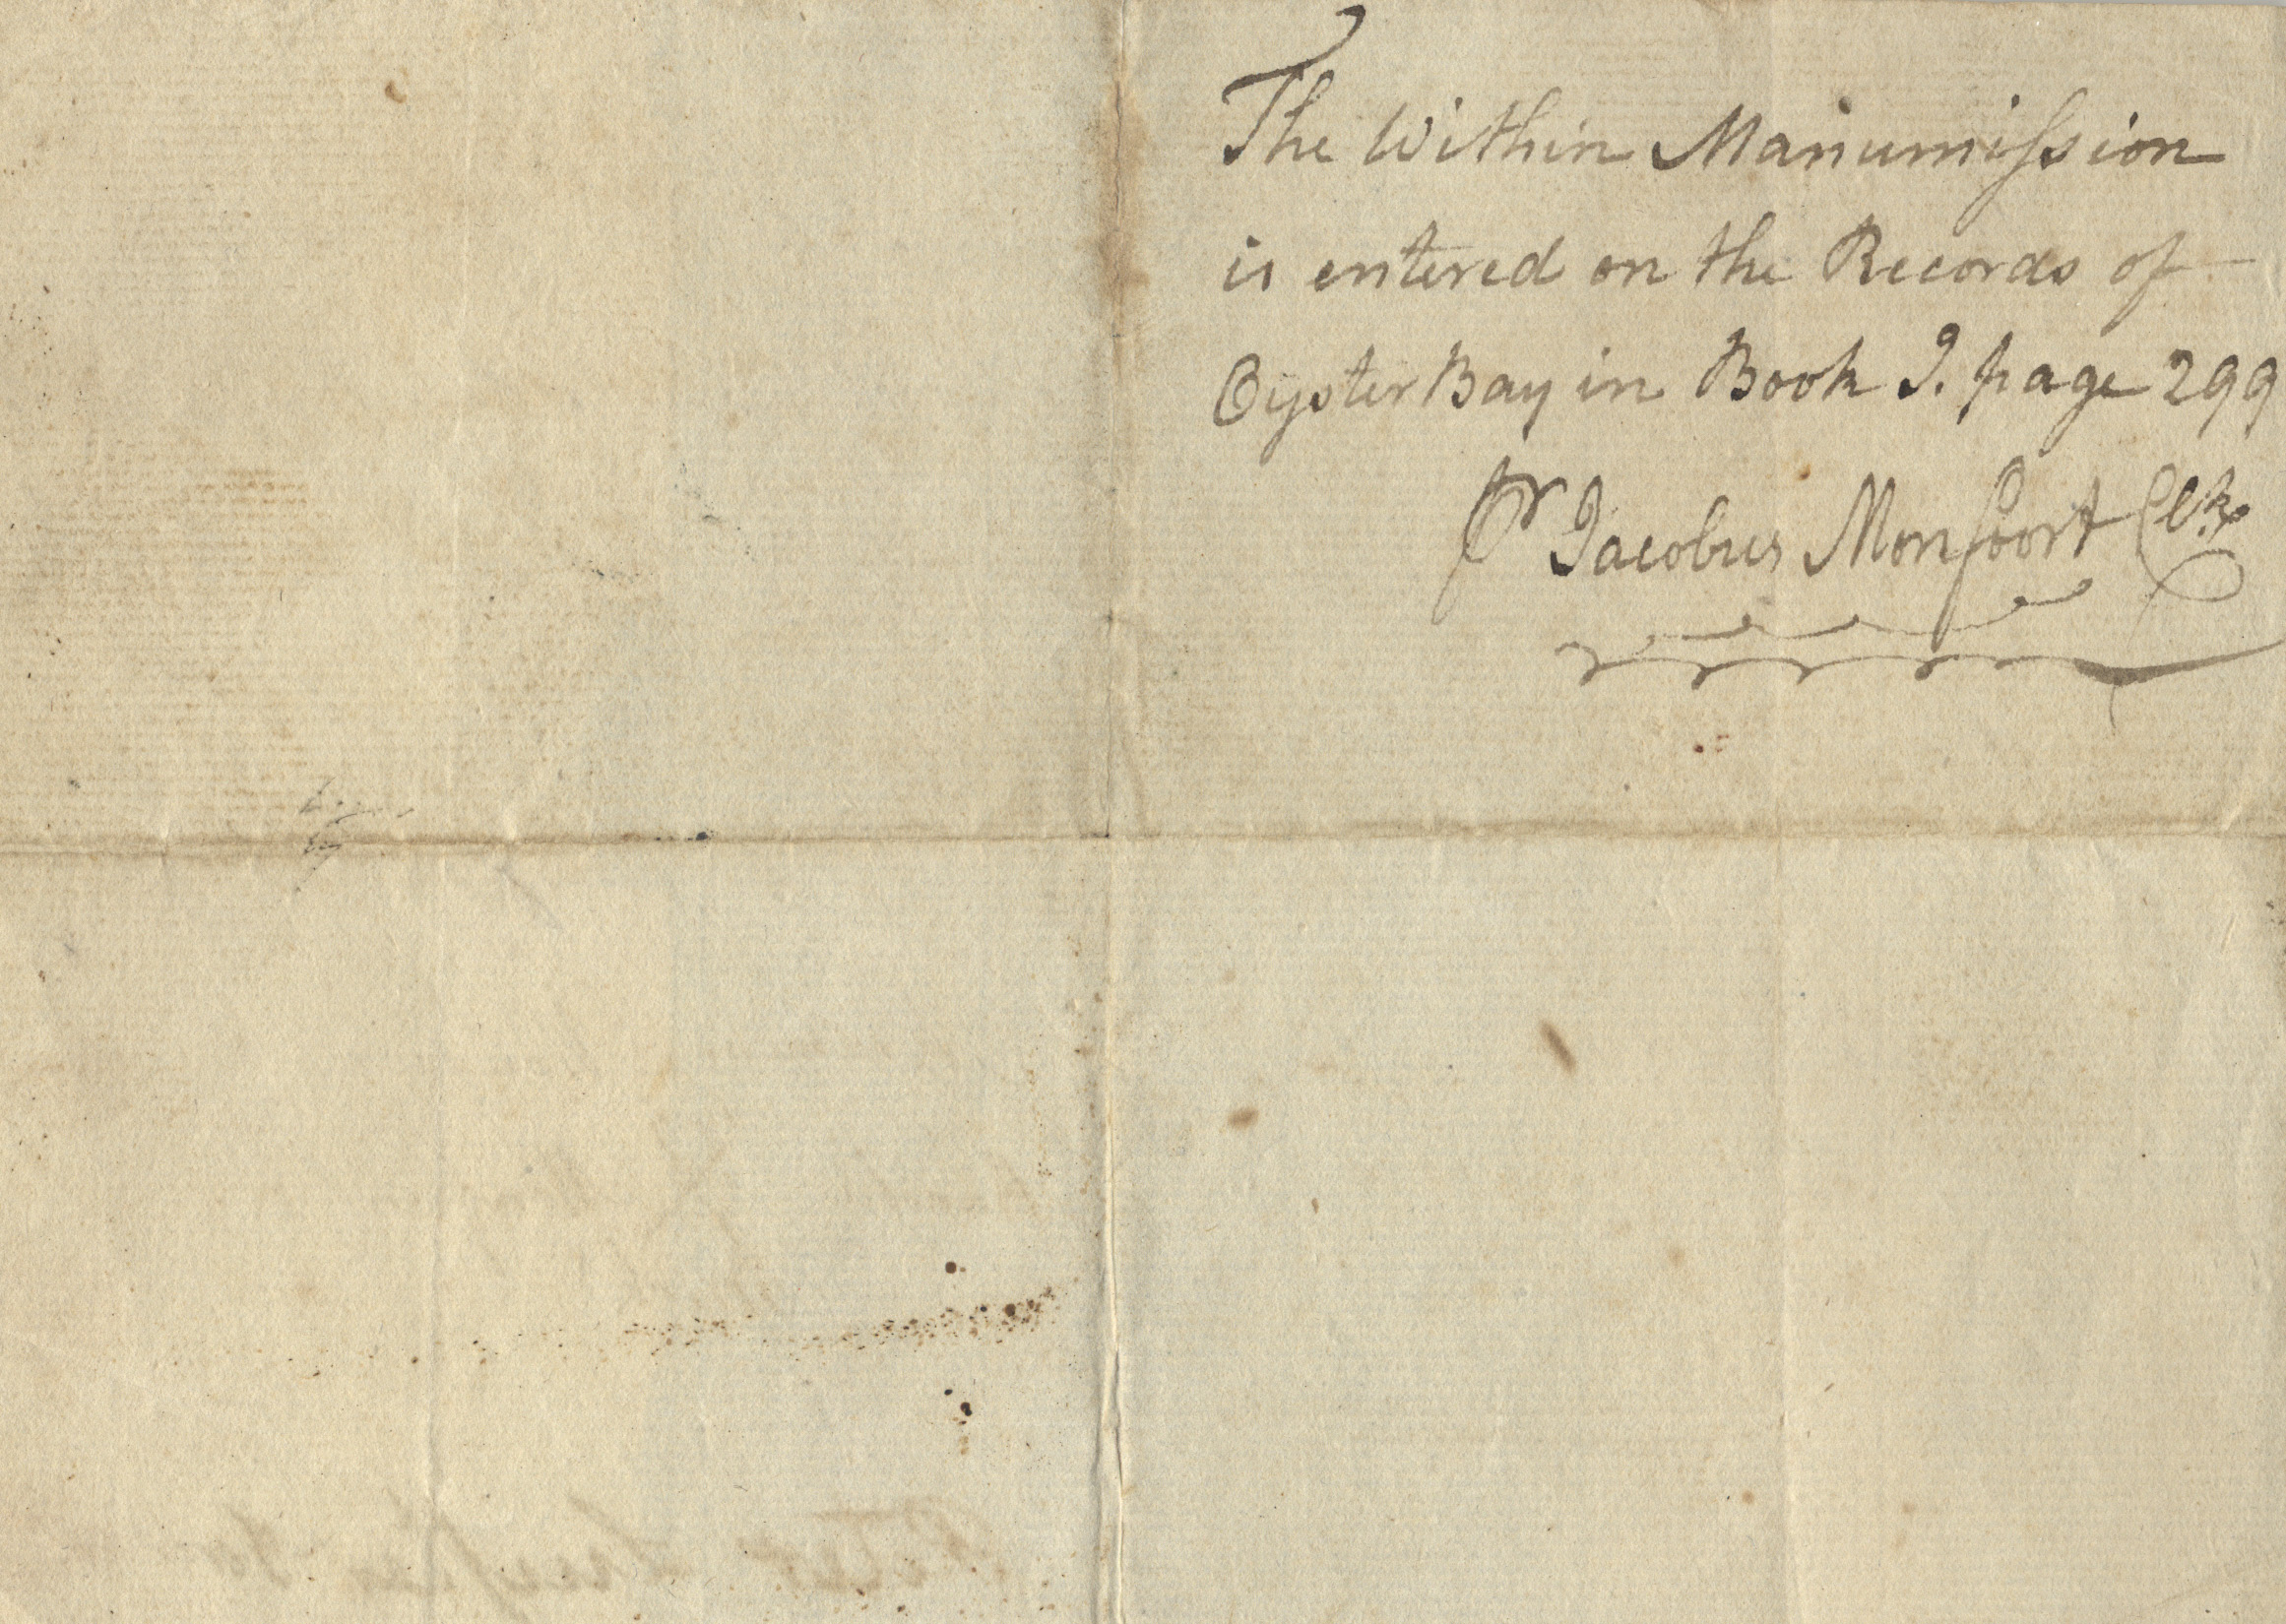 The Within Manumission
is entered on the Records of
Oyster Bay in Book I. page 299
pr Jacobus Monfoort Clk.